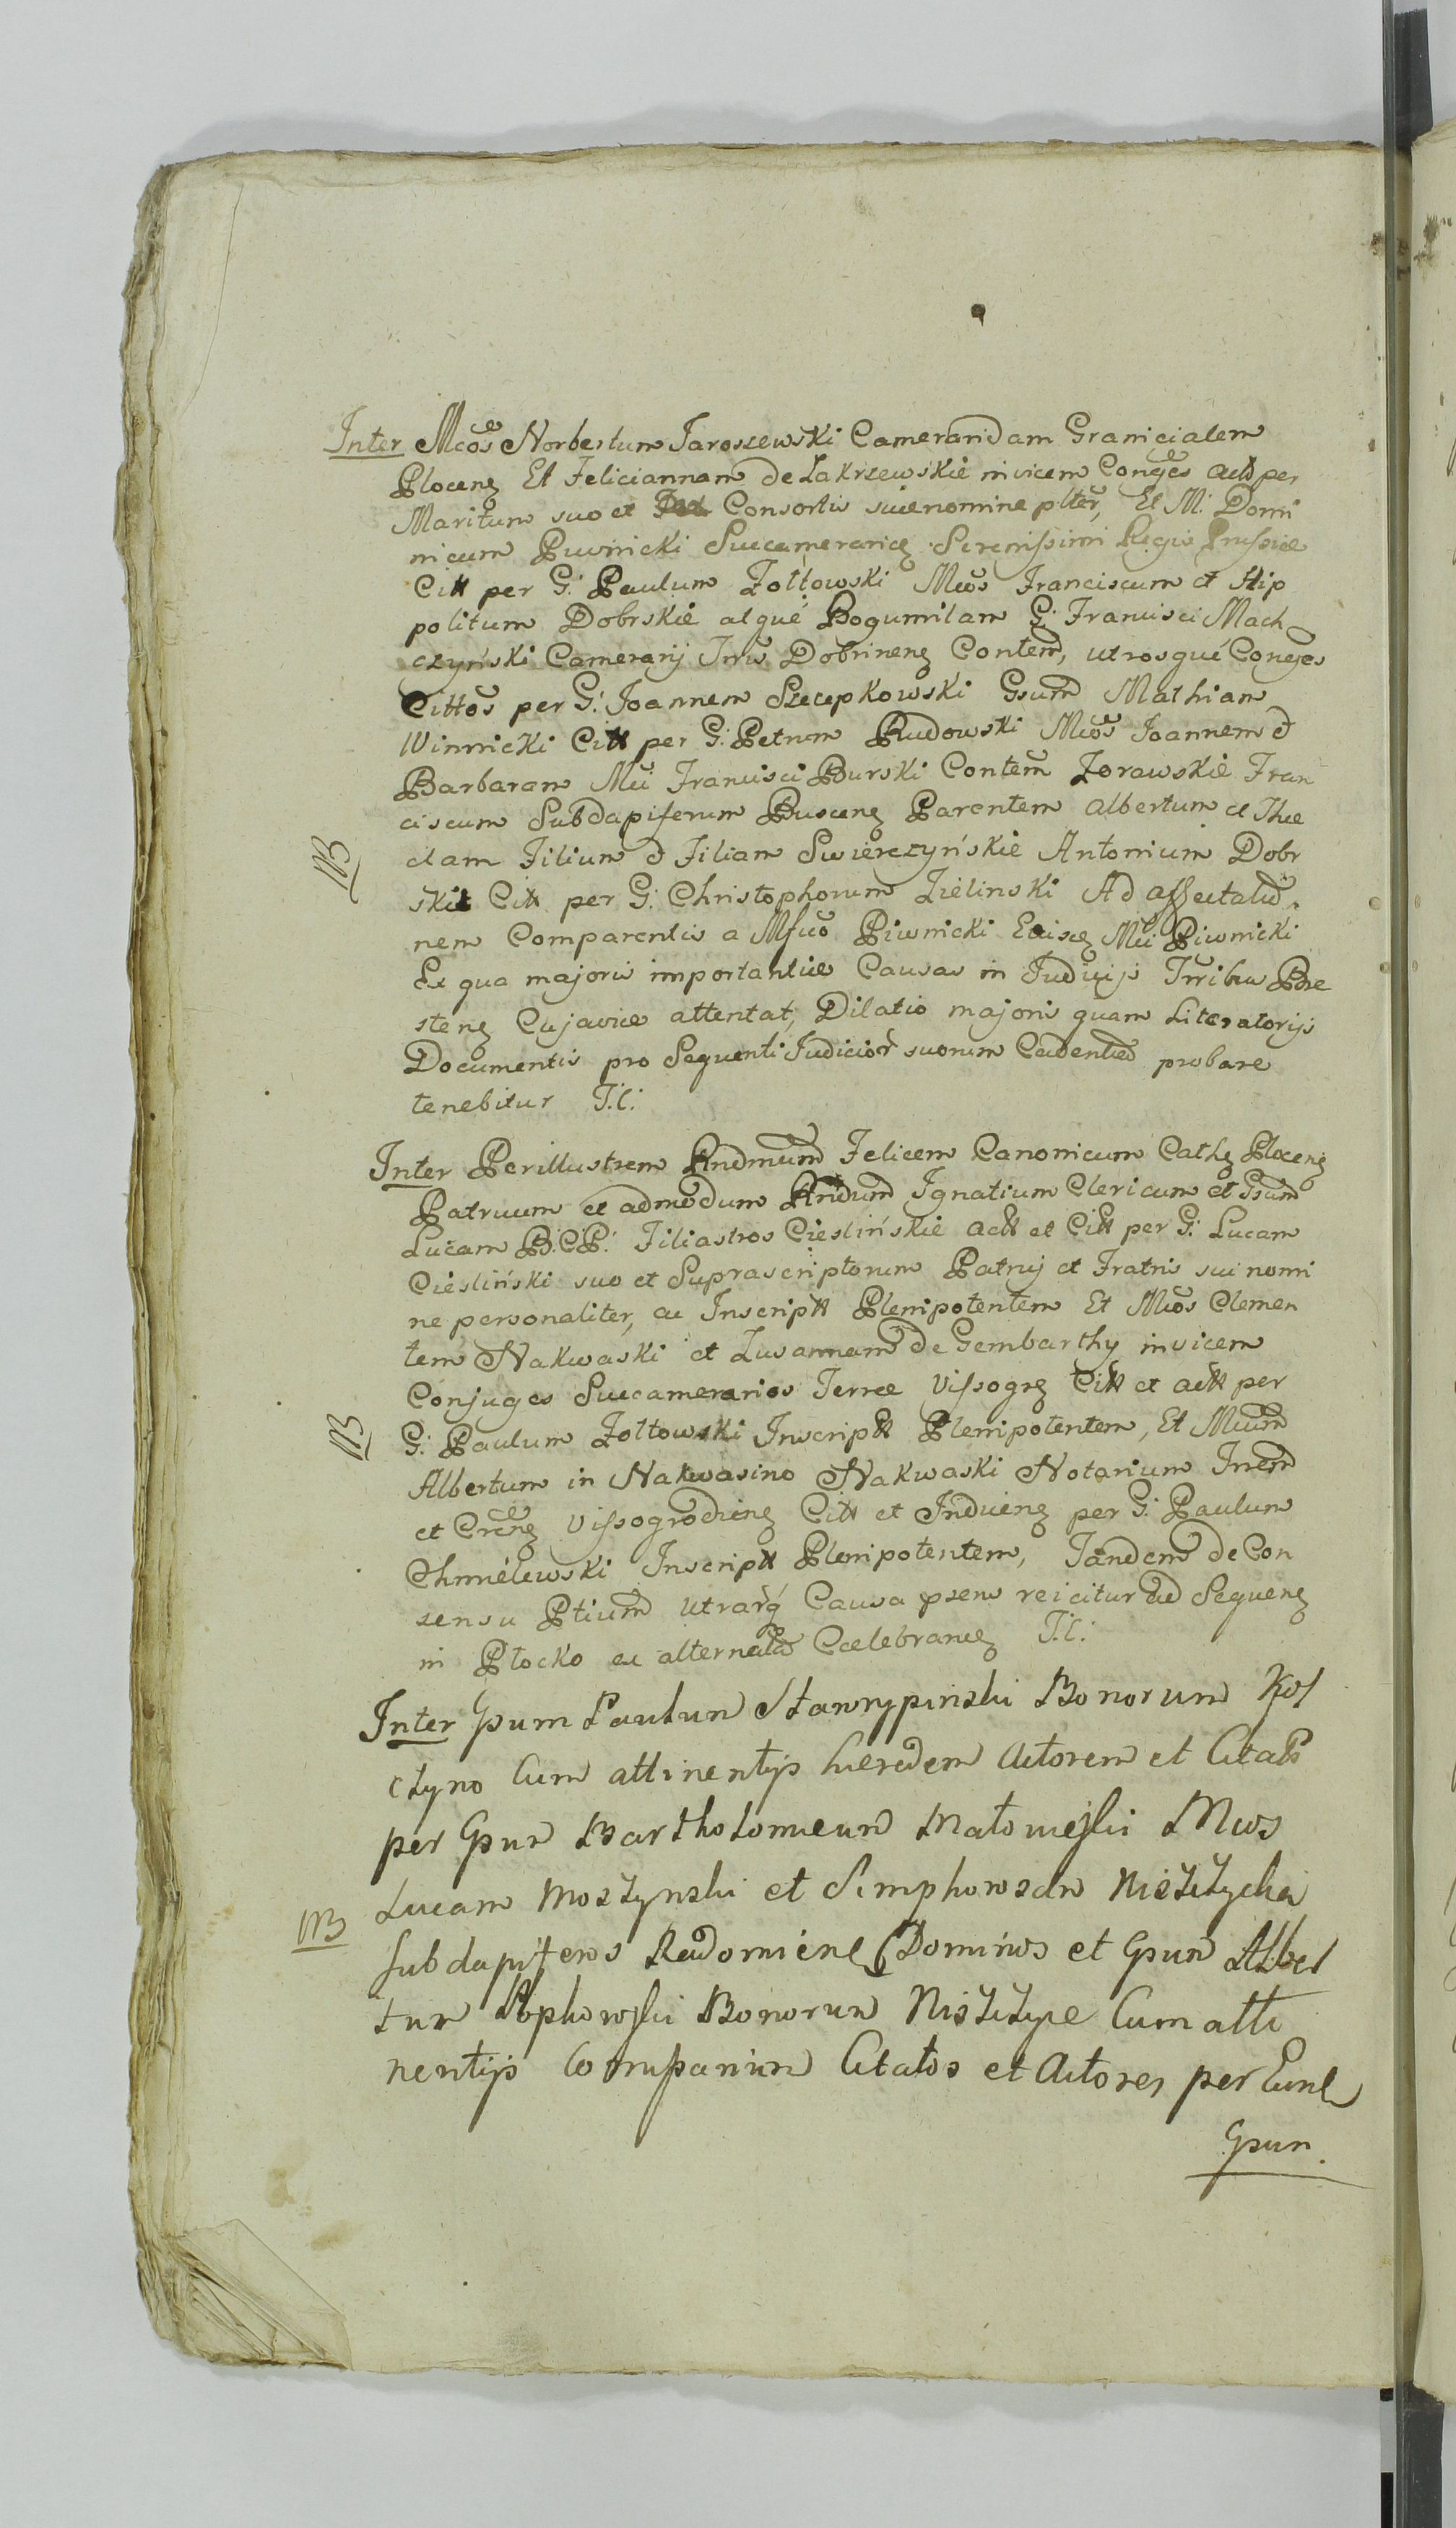 Inter Mcos Norbertum Jaroszewski Cameraridam Granicialem
Plocenz Et Feliciannam de Zakrzewskie invicem Conges actt per
Maritum suo et Consortis suae nomine plter, Et M. Domi
nicum Piwnicki Succamerarz Serenissimi Regis Prussiae
Citt per G: Paulum Zołtowski Mcos Franciscum et Hip
politum Dobrskie atque Bogumilam G: Francisci Mach
czyński Camerarij Trris Dobrinenz Contem, utrosque Conges
Cittos per G: Joannem Szczepkowski Gsum Mathiam
Winnicki Citt per G: Petrum Rudowski Mcos Joannem et
Barbaram Mci Francisci Burski Contem Zorawskie Fran
ciscum Subdapiferum Buscenz Parentem Albertum et The
clam Filium et Filiam Swierczyńskie Antonium Dobr
skie Citt per G: Christophorum Zielinski Ad affectatio
nem Comparentis a Mfico Piwnicki Mci Piwnicki
Ex quo majoris importantiae Causas in Judicijs Trribus Bre
stenz Cujaviae attentat, Dilatio majoris quam Literatorijs
Documentis pro Sequenti Judicior suorum Cadentia probare
tenebitur J.C:
NB
Inter Perillustrem Rndmum Felicem Canonicum Cathz Plocenz
Patruum et admodum Rndum Ignatium Clericum et Gsum
Lucam B.C.P. Filiastros Cieslińskie actt et Citt per G: Lucam
Ciesliński suo et Suprascriptorum Patruj et Fratris sui nomi
ne personaliter, ac Inscriptt Plenipotentem Et Mcos Clemen
tem Nakwaski et Zusannam de Gembarthy invicem
Conjuges Succamerarios Terrae Vissogrz Citt et actt per
G: Paulum Zołtowski Inscriptt Plenipotentem, Et Mcum
NB
Albertum in Nakwasino Nakwaski Notarium Trrem
et Crenz Vissogrodienz Citt et Inducenz per G: Paulum
Chmielewski Inscriptt Plenipotentem, Tandem de Con
sensu Ptium utrarq Causa psens reicitur ad Sequenz
in Płocko ex alternata Caelebrandz J.C:
Inter Gsum Paulum Stawrypinski Bonorum Kos
ctyno Cum attinentijs haeredem Actorem et Citatt
per Gsum Bartholomaeum Matowieski Mcos
Lucam Mostynski et Simphorosam Nisztycka
NB
subdapiferos Radomiens Dominos et Gsum Alber
tum Bonorum Nisztyce Cum atti
nentijs Citatos et Actores per Eund
Gsum